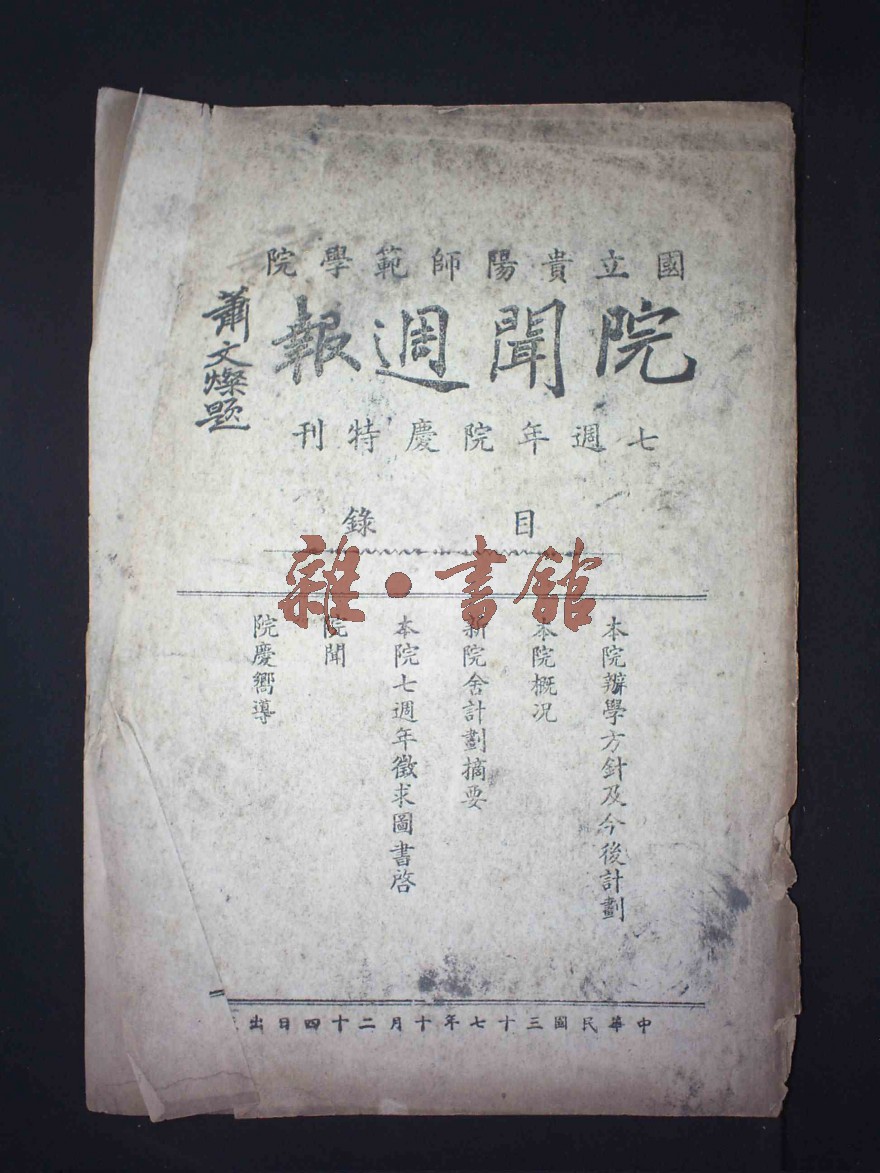 國立貴陽師範學院
院聞週報
蕭文燦題
七週年院慶特刊
目錄
雜·書館
本院辦學方針及今後計劃
本院概況
新院舍計劃摘要
本院七週年徵求圖書啓
院聞
院慶嚮導
中華民國三十七年十月二十四日出